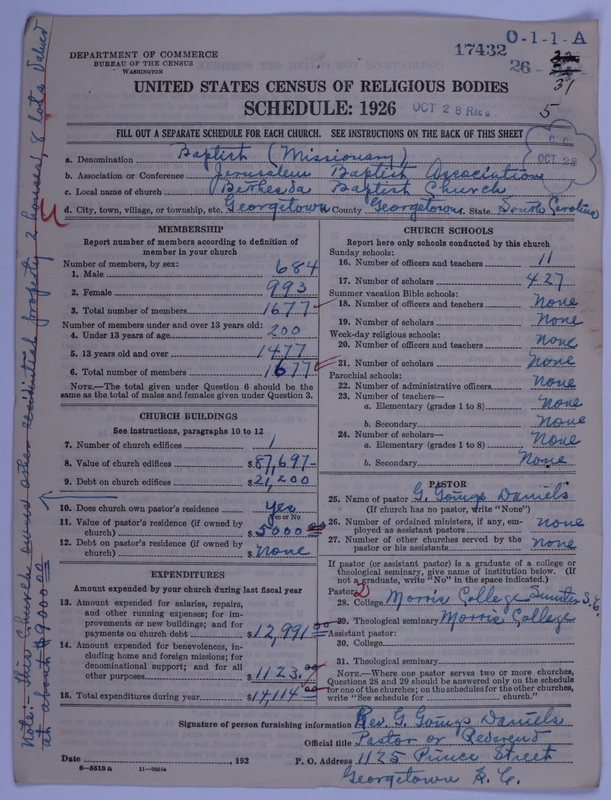 O-1-1-A
17432
26
31
5
DEPARTMENT OF COMMERCE
BUREAU OF THE CENSUS
WASHINGTON
UNITED STATES CENSUS OF RELIGIOUS BODIES
SCHEDULE: 1926
OCT 28 Rec'd
FILL OUT A SEPARATE SCHEDULE FOR EACH CHURCH. SEE INSTRUCTIONS ON THE BACK OF THIS SHEET
OCT 28
a. Denomination Baptist (Missionary)
b. Association or Conference Jerusalem Baptist Association
c. Local name of church Bethesda Baptist Church
d. City, town, village, or township, etc. Georgetown County Georgetown State South Carolina
MEMBERSHIP
Report number of members according to definition of
member in your church
Number of members, by sex:
1. Male 684
2. Female 993
3. Total number of members 1677
Number of members under and over 13 years old:
4. Under 13 years of age 200
5. 13 years old and over 1477
6. Total number of members 1677
NOTE.—The total given under Question 6 should be the
same as the total of males and females given under Question 3.
CHURCH BUILDINGS
See instructions, paragraphs 10 to 12
7. Number of church edifices 1
8. Value of church edifices $87,697-
9. Debt on church edifices $21,200
10. Does church own pastor's residence? yes
Yes or No
11. Value of pastor's residence (if owned by
church) $5000 00
12. Debt on pastor's residence (if owned by
church) $None
EXPENDITURES
Amount expended by your church during last fiscal year
13. Amount expended for salaries, repairs,
and other running expenses; for im-
provements or new buildings; and for
payments on church debt $12,991 00
14. Amount expended for benevolences, in-
cluding home and foreign missions; for
denominational support; and for all
other purposes $1123.00
15. Total expenditures during year $14,114 00
CHURCH SCHOOLS
Report here only schools conducted by this church
Sunday schools:
16. Number of officers and teachers 11
17. Number of scholars 427
Summer vacation Bible schools:
18. Number of officers and teachers None
19. Number of scholars None
Week-day religious schools:
20. Number of officers and teachers None
21. Number of scholars None
Parochial schools:
22. Number of administrative officers None
23. Number of teachers—
a. Elementary (grades 1 to 8) None
b. Secondary None
24. Number of scholars—
a. Elementary (grades 1 to 8) None
b. Secondary None
PASTOR
25. Name of pastor G. Goings Daniels
(If church has no pastor, write "None")
26. Number of ordained ministers, if any, em-
ployed as assistant pastors none
27. Number of other churches served by the
pastor or his assistants none
If pastor (or assistant pastor) is a graduate of a college or
theological seminary, give name of institution below. (If
not a graduate, write "No" in the space indicated.)
Pastor:
28. College Morris College Sumter S.C.
29. Theological seminary Morris College
Assistant pastor:
30. College
31. Theological seminary
NOTE.—Where one pastor serves two or more churches,
Questions 28 and 29 should be answered only on the schedule
for one of the churches; on the schedules for the other churches,
write "See schedule for church."
Signature of person furnishing information Rev. G. Goings Daniels
Official title Pastor or Reverend
Date , 192 P. O. Address 1125 Prince Street
8—5518 a 11—9264a
Georgetown S. C.
Note:- this Church owns other residential property 2 houses, 8 lots valued
at about $9000 00